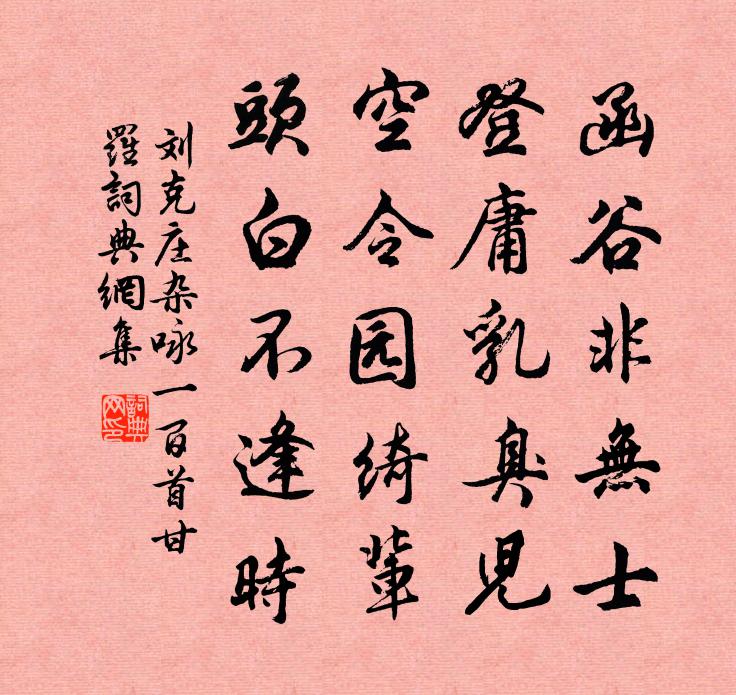 函谷非無士
登庸乳臭児
空令园绮輩
頭白不逢時
刘克庄杂咏一百首甘
羅詞典網集
詞典网印